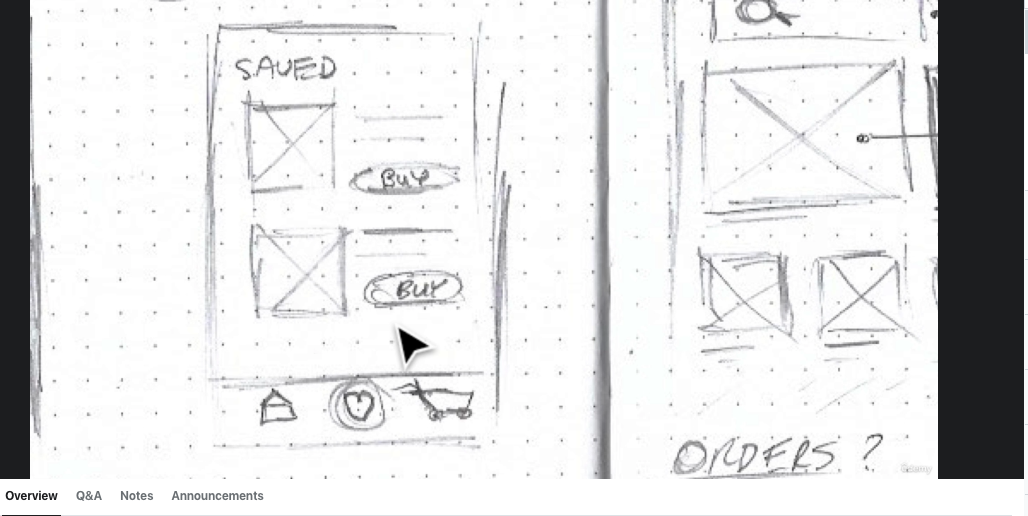 SAVED
BUY
BUY
ORDERS ?
Udemy
Overview Q&A Notes Announcements